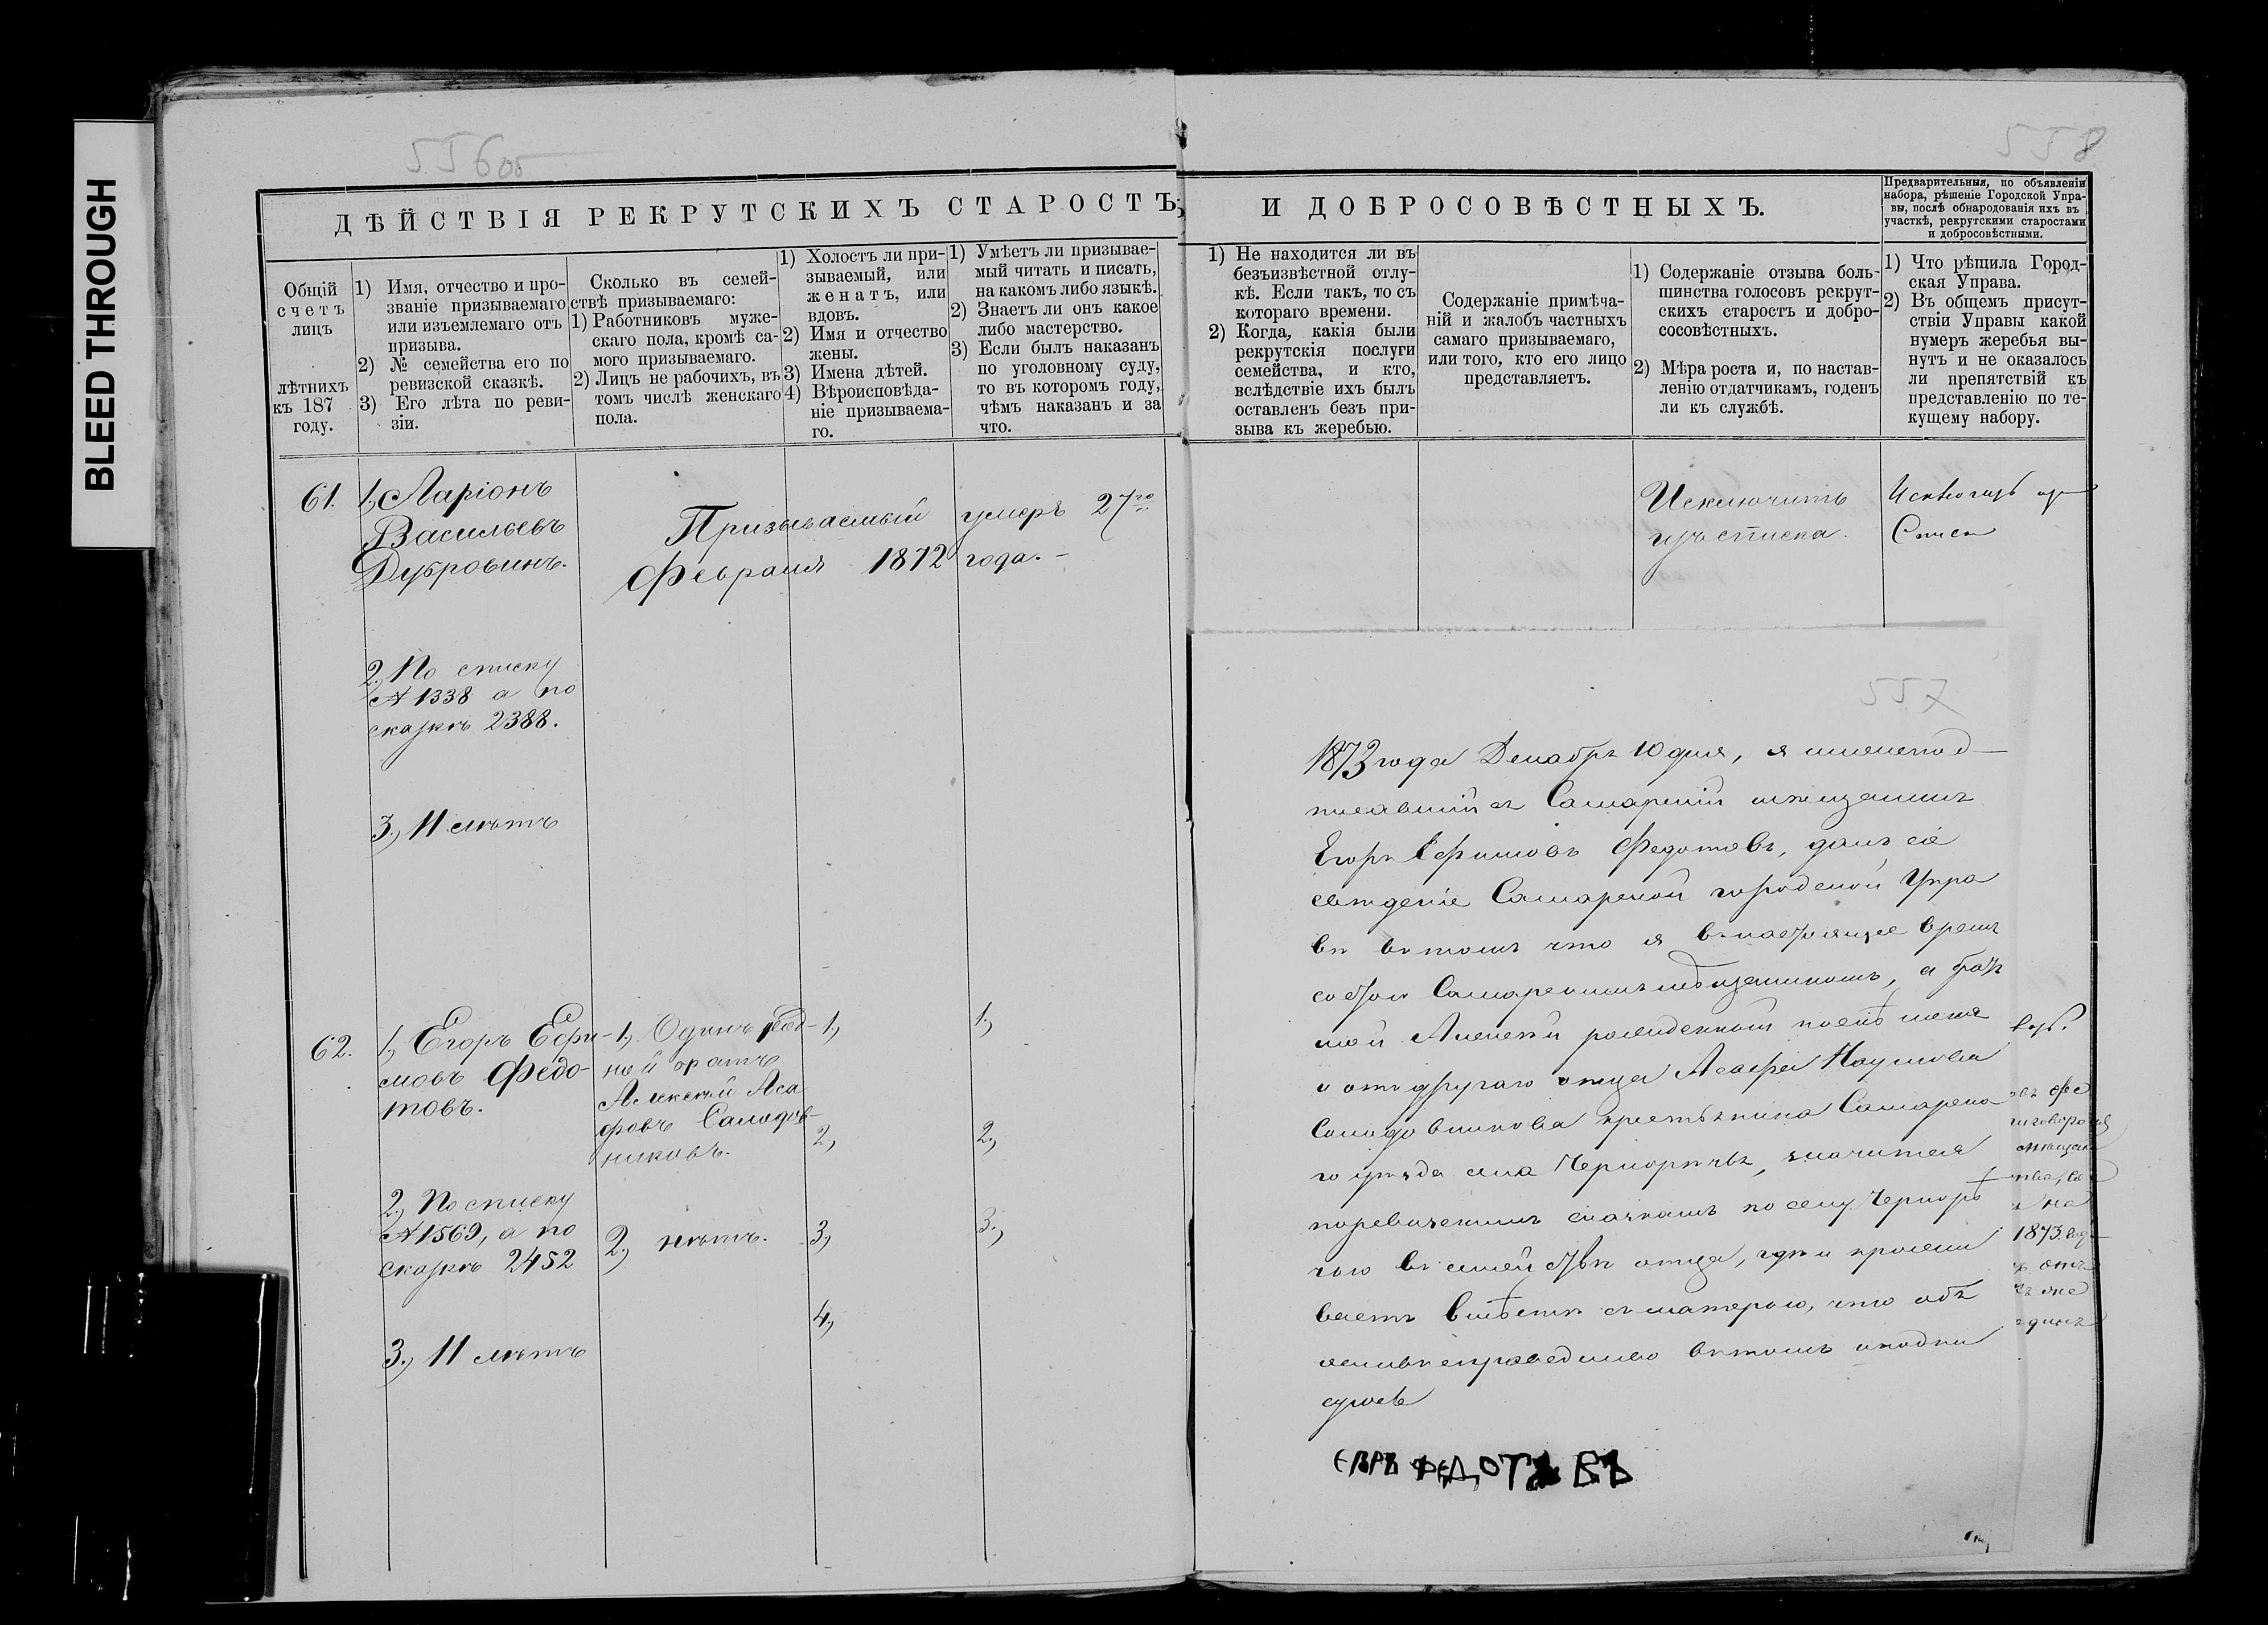 BLEED THROUGH
556об
558
ДѢЙСТВІЯ РЕКРУТСКИХЪ СТАРОСТЪ,
И ДОБРОСОВѢСТНЫХЪ.
Предварительныя, по объявленіи
набора, рѣшеніе Городской Упра-
вы, послѣ обнародованія ихъ въ
участкѣ, рекрутскими старостами
и добросовѣстными.
Общій
счетъ
лицъ
лѣтнихъ
къ 187
году.
1) Имя, отчество и про-
званіе призываемаго
или изъемлемаго отъ
призыва.
2) № семейства его по
ревизской сказкѣ.
3) Его лѣта по реви-
зіи.
Сколько въ семей-
ствѣ призываемаго:
1) Работниковъ муже-
скаго пола, кромѣ са-
мого призываемаго.
2) Лицъ не рабочихъ, въ
томъ числѣ женскаго
пола.
1) Холостъ ли при-
зываемый, или
женатъ, или
вдовъ.
2) Имя и отчество
жены.
3) Имена дѣтей.
4) Вѣроисповѣда-
ніе призываема-
го.
1) Умѣетъ ли призывае-
мый читать и писать,
на какомъ либо языкѣ.
2) Знаетъ ли онъ какое
либо мастерство.
3) Если былъ наказанъ
по уголовному суду,
то въ которомъ году,
чѣмъ наказанъ и за
что.
1) Не находится ли въ
безъизвѣстной отлу-
кѣ. Если такъ, то съ
котораго времени.
2) Когда, какія были
рекрутскія послуги
семейства, и кто,
вслѣдствіе ихъ былъ
оставленъ безъ при-
зыва къ жеребью.
Содержаніе примѣча-
ній и жалобъ частныхъ
самаго призываемаго,
или того, кто его лицо
представляетъ.
1) Содержаніе отзыва боль-
шинства голосовъ рекрут-
скихъ старостъ и добро-
сосовѣстныхъ.
2) Мѣра роста и, по настав-
ленію отдатчикамъ, годенъ
ли къ службѣ.
1) Что рѣшила Город-
ская Управа.
2) Въ общемъ присут-
ствіи Управы какой
нумеръ жеребья вы-
нутъ и не оказалось
ли препятствій къ
представленію по те-
кущему набору.
61.
1, Ларіонъ
Васильевъ
Дубровинъ.
2, По списку
№ 1338 а по
сказкѣ 2388.
3, 11 лѣтъ
Призываемый умеръ 27го
Февраля 1872 года. –
Исключить
изъ списка.
557
1873 года Декабръ 10 дня, я имепод–
писавшійся Самарскій мѣщанинъ
Егоръ Ефимовъ Федотовъ, далъ сіе
свѣденіе Самарской городской Упра
вѣ въ томъ что я внастоящее время
состою Самарскимъ мѣщаниномъ, а братъ
мой Алексѣй рожденный
и отъ другаго отца Асафа Наумова
Самодовникова крестьянина Самарска
го уѣзда села Чернорѣчья, значится
поревизскимъ сказкамъ по селу Чернорѣ
чью въ семействѣ отца, гдѣ и прожи
ваетъ вмѣстѣ съ матерью, что объ
ясилъ справедливо въ томъ и подпи
суюсь
ФЕДОТЪВЪ
62.
1, Егоръ Ефи-
мовъ Федо-
товъ.
2, По списку
№ 1569, а по
сказкѣ 2452
3, 11 лѣтъ
1, Одинъ род-
ной братъ
Алексѣй Аса
фовъ Самодов-
никовъ.
2, нѣтъ.
1,
2,
3,
4,
1,
2,
3,
1873